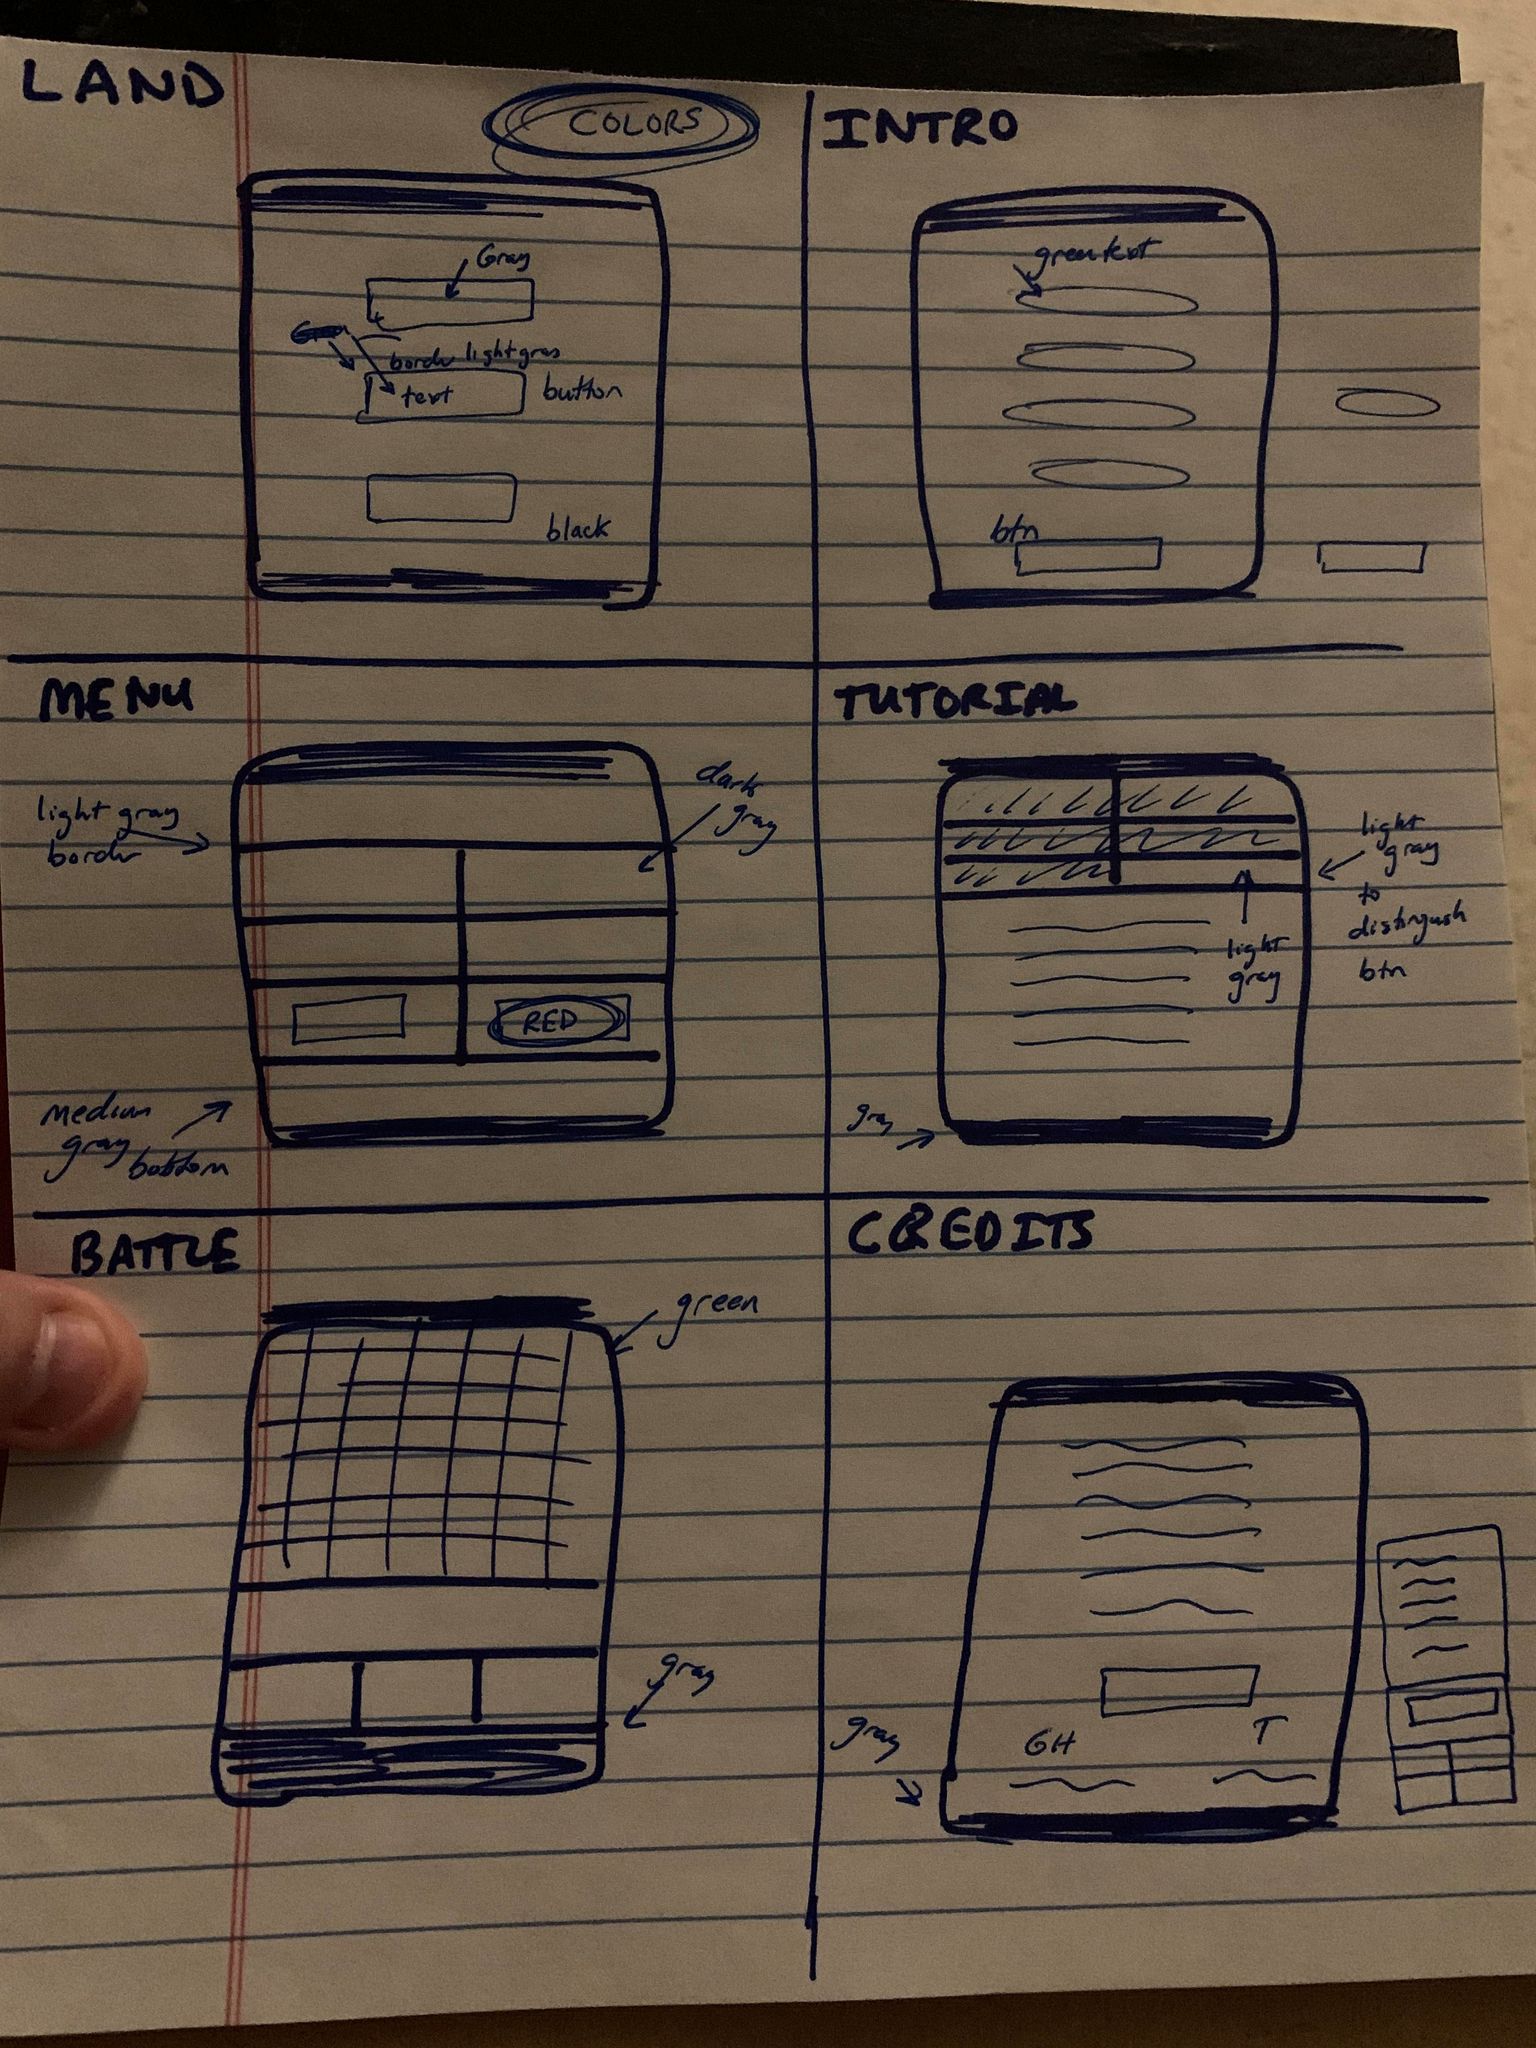 LAND
COLORS
Gray
border light gray
text
button
black
INTRO
green text
btn
MENU
light gray
border
dark
gray
RED
medium
gray
bottom
TUTORIAL
light
gray
light
gray
to
distingush
btn
gray
BATTLE
green
gray
CREDITS
GH
T
gray